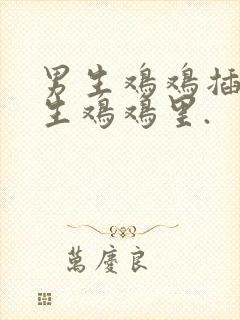 男生鸡鸡插
生鸡鸡里.
萬慶良